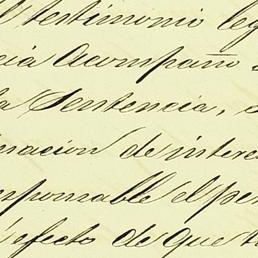 testimonio leg
cia Acompaño
la Sentencia,
nacion de intere
esponsable el per
efecto de que